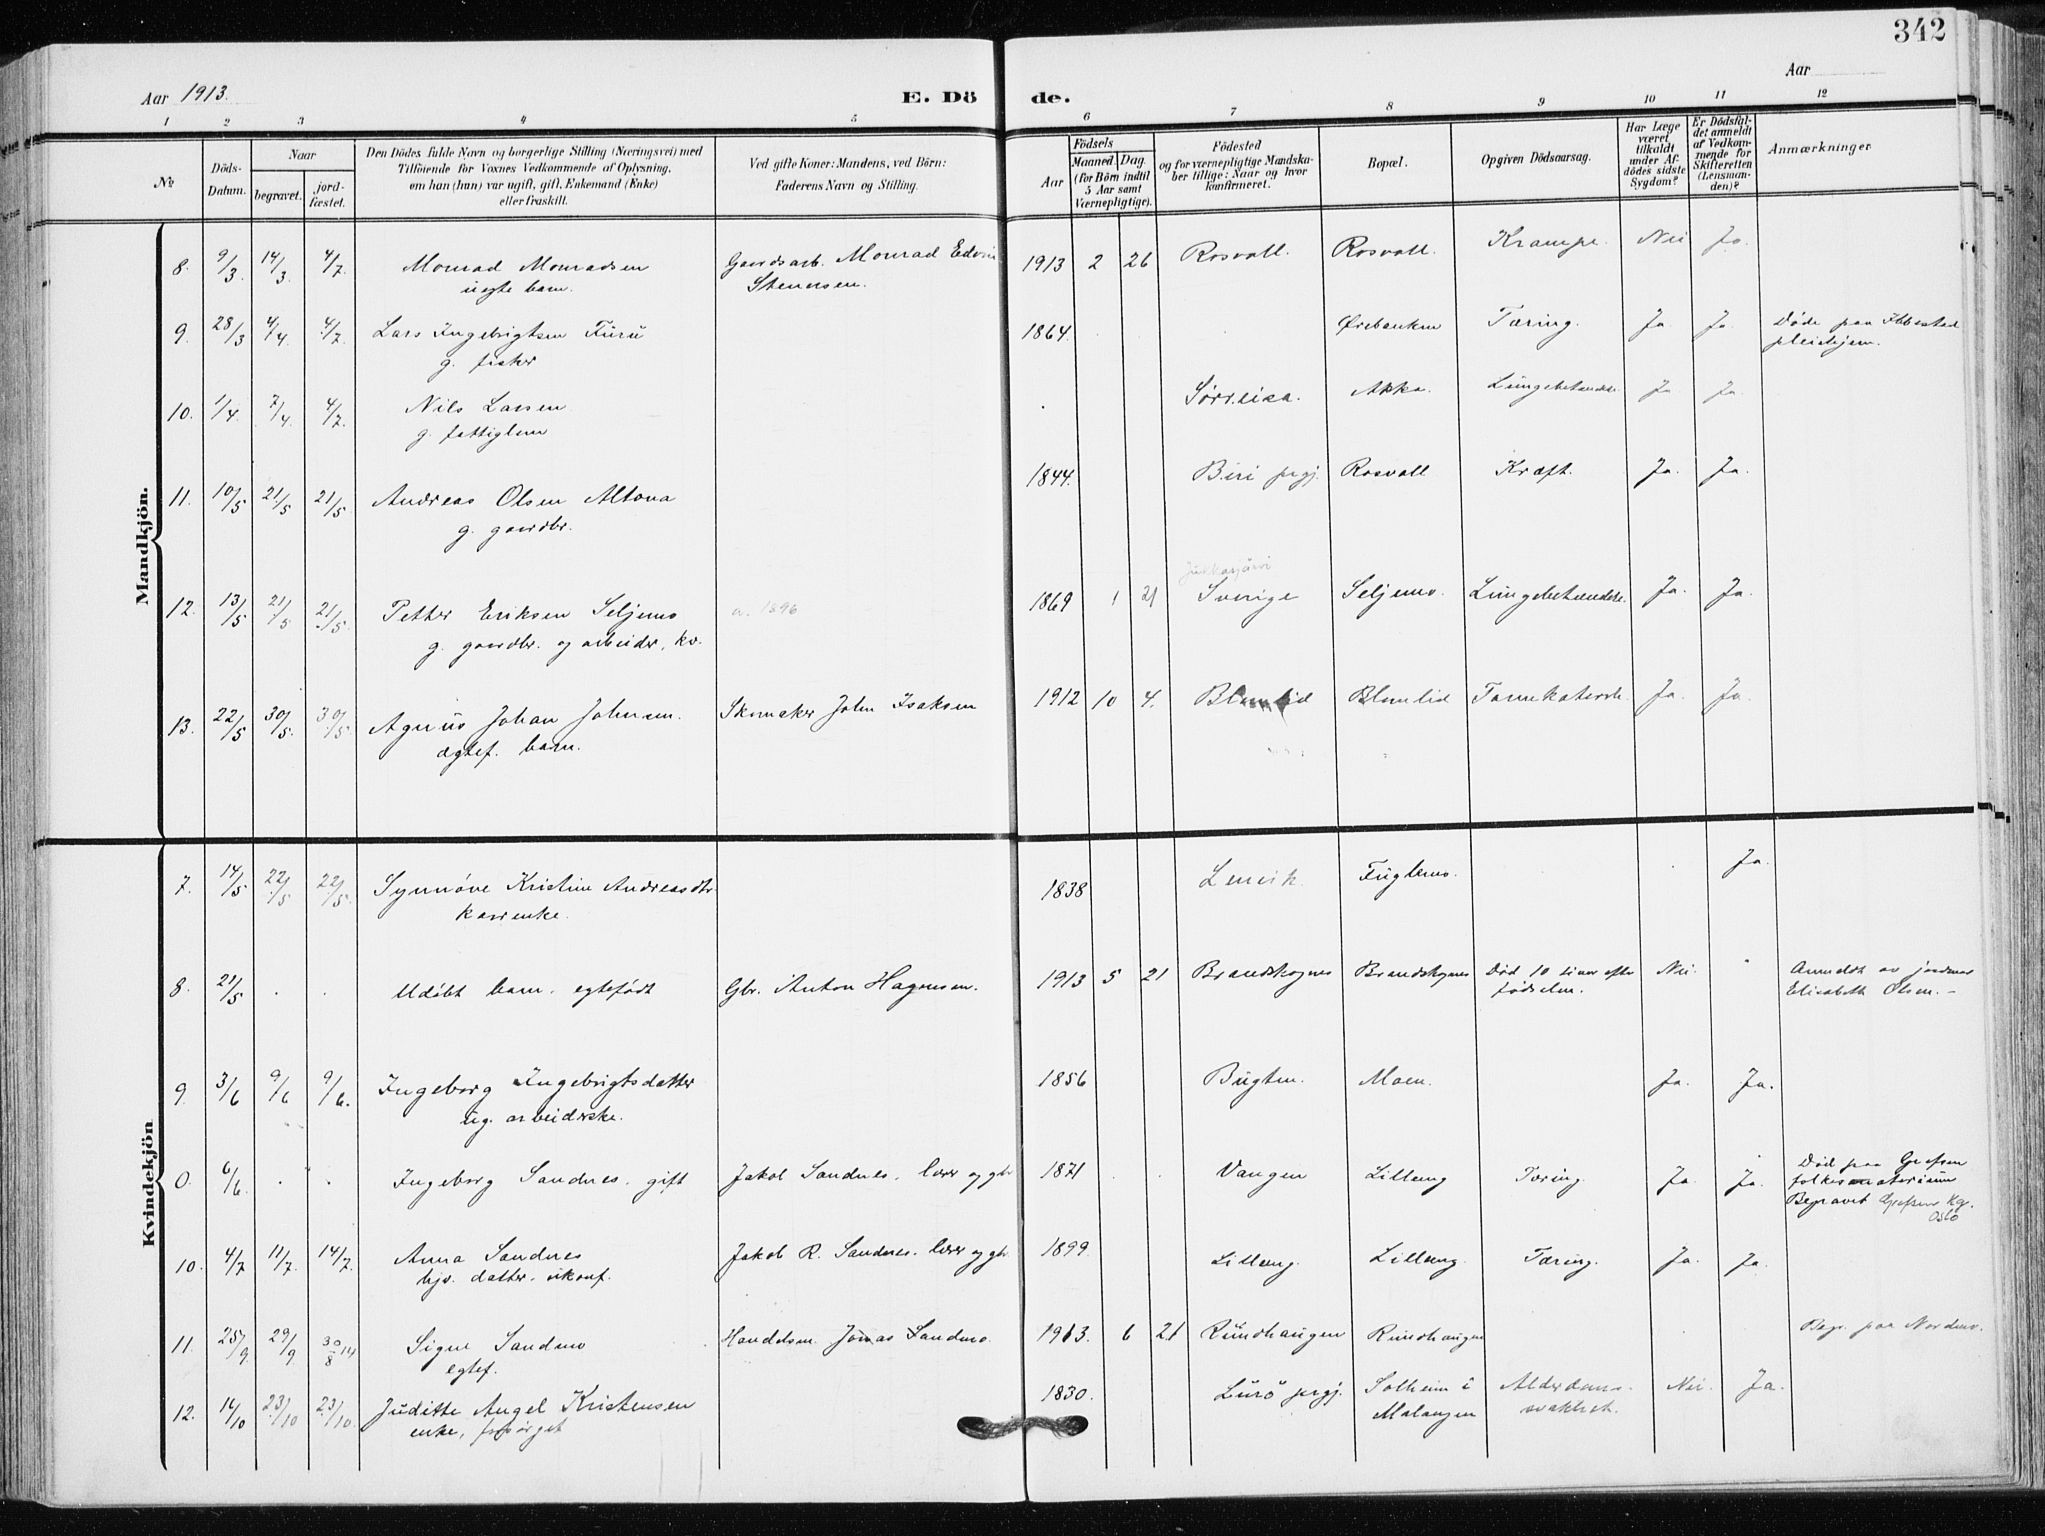 342
Aar 1913.
E. Dö de.
Aar
1 2 3 4 5 6 7 8 9 10 11 12
№
Döds-Datum.
Naar
begravet.
jord-fæstet.
Den Dödes fulde Navn og borgerlige Stilling (Næringsvei) med
Tilföiende for Voxnes Vedkommende af Oplysning,
om han (hun) var ugift, gift, Enkemand (Enke)
eller fraskilt.
Ved gifte Koner: Mandens, ved Börn:
Faderens Navn og Stilling.
Födsels
Aar
Maaned. Dag.
(for Börn indtil
5 Aar samt
Værnepligtige).
Födested
og for værnepligtige Mandska-
ber tillige: Naar og hvor
konfirmeret.
Bopæl.
Opgiven Dödsaarsag.
Har Læge
været
tilkaldt
under Af-
dödes sidste
Sygdom?
Er Dödsfal-
det anmeldt
af Vedkom-
mende for
Skifteretten
(Lensman-
den)?
Anmærkninger
Mandkjön.
8. 9/3. 14/3. 4/7. Monrad Monradsen Gaardsarb. Monrad Edvin 1913 2 26 Rosvoll. Rosvoll. Krampe. Nei Ja.
uegte barn. Stenersen.
9. 28/3 4/4. 4/7. Lars Ingebrigtsen Furu 1864. Ørebanken Tæring. Ja. Ja. Døde paa Ibbestad
g. fisker pleiehjem.
10. 1/4. 7/4. 4/7. Nils Larsen Sørreisa. Akka. Lungebetændelse Ja Ja.
g. fattiglem
11. 10/5 21/5 21/5. Andreas Olsen Altona 1844. Biri prgj. Rosvoll Kræft. Ja. Ja.
g. gaardbr.
Jukkasjärvi
12. 13/5 21/5 21/5. Petter Eriksen Seljemo a. 1896 1869 1 21 Sverige Seljemo. Lungebetændelse. Ja. Ja.
g. gaardbr. og arbeider, kv.
13. 22/5 30/5. 30/5. Agnus Johan Johnsen. Skomaker John Isaksen 1912 10 4. Blomlid Blomlid Tarmkatarrh. Ja. Ja.
ægtef. barn.
Kvindekjön
7. 14/5 22/5 22/5. Synnøve Kristine Andreasdtr 1838 Lenvik. Fuglemo. Ja.
kaarenke.
8. 21/5 Udøbt barn. egtefødt Gbr. Anton Hagensen. 1913 5 21 Brandskognes Brandskognes Død 10 timer efter Nei. Anmeldt av jordmor
fødselen. Elisabeth Olsen.-
9. 3/6 9/6 9/6. Ingeborg Ingebrigtsdatter 1856 Bugten. Moen. Ja. Ja.
ug. arbeiderske.
0. 6/6. Ingeborg Sandnes, gift Jakob Sandnes. lærer og gbr 1871 Vangen Lilleng Tæring. Ja. Ja. Død paa Grefsen
folkesanatorium
Begravet Grefsens Kg.
Oslo
10. 4/7 11/7. 14/7. Anna Sandnes Jakob R. Sandnes. lærer og gbr. 1899. Lilleng. Lilleng. Tæring. Ja. Ja.
hjv. datter. ukonf.
11. 25/9. 29/9. 30/8 14 Signe Sandmo Handelsm. Jonas Sandmo. 1913. 6 21 Rundhaugen Rundhaugen Begr. paa Nordmo.
egtef.
12. 14/10 23/10 23/10. Juditte Angel Kristensen 1830. Lurö prgj. Solheim i Alderdoms- Nei. Ja.
enke, forsørget Malangen svakhet.